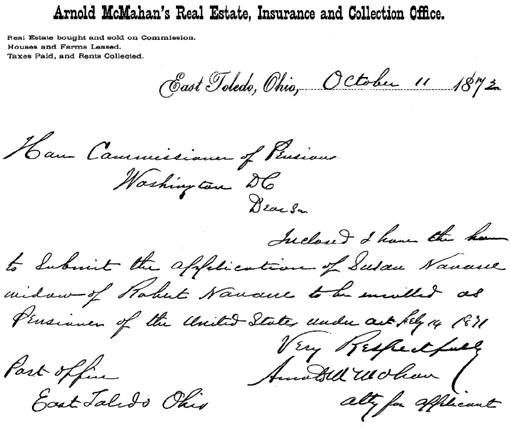 Arnold McMahan's Real Estate, Insurance and Collection Office.
Real Estate bought and sold on Commission.
Houses and Farms Leased.
Taxes Paid, and Rents Collected.
East Toledo, Ohio, October 11 1872
Hon Commissioner of Pensions
Washington DC
Dear Sir
Inclosed I have the hon
to submit the application of Susan Navarre
widow of Robert Navarre to be enrolled as
Pensioner of the United States under act Feby 14 1871
Very Respectfully
Post office
Arnold McMahan
East Toledo Ohio
atty for applicant